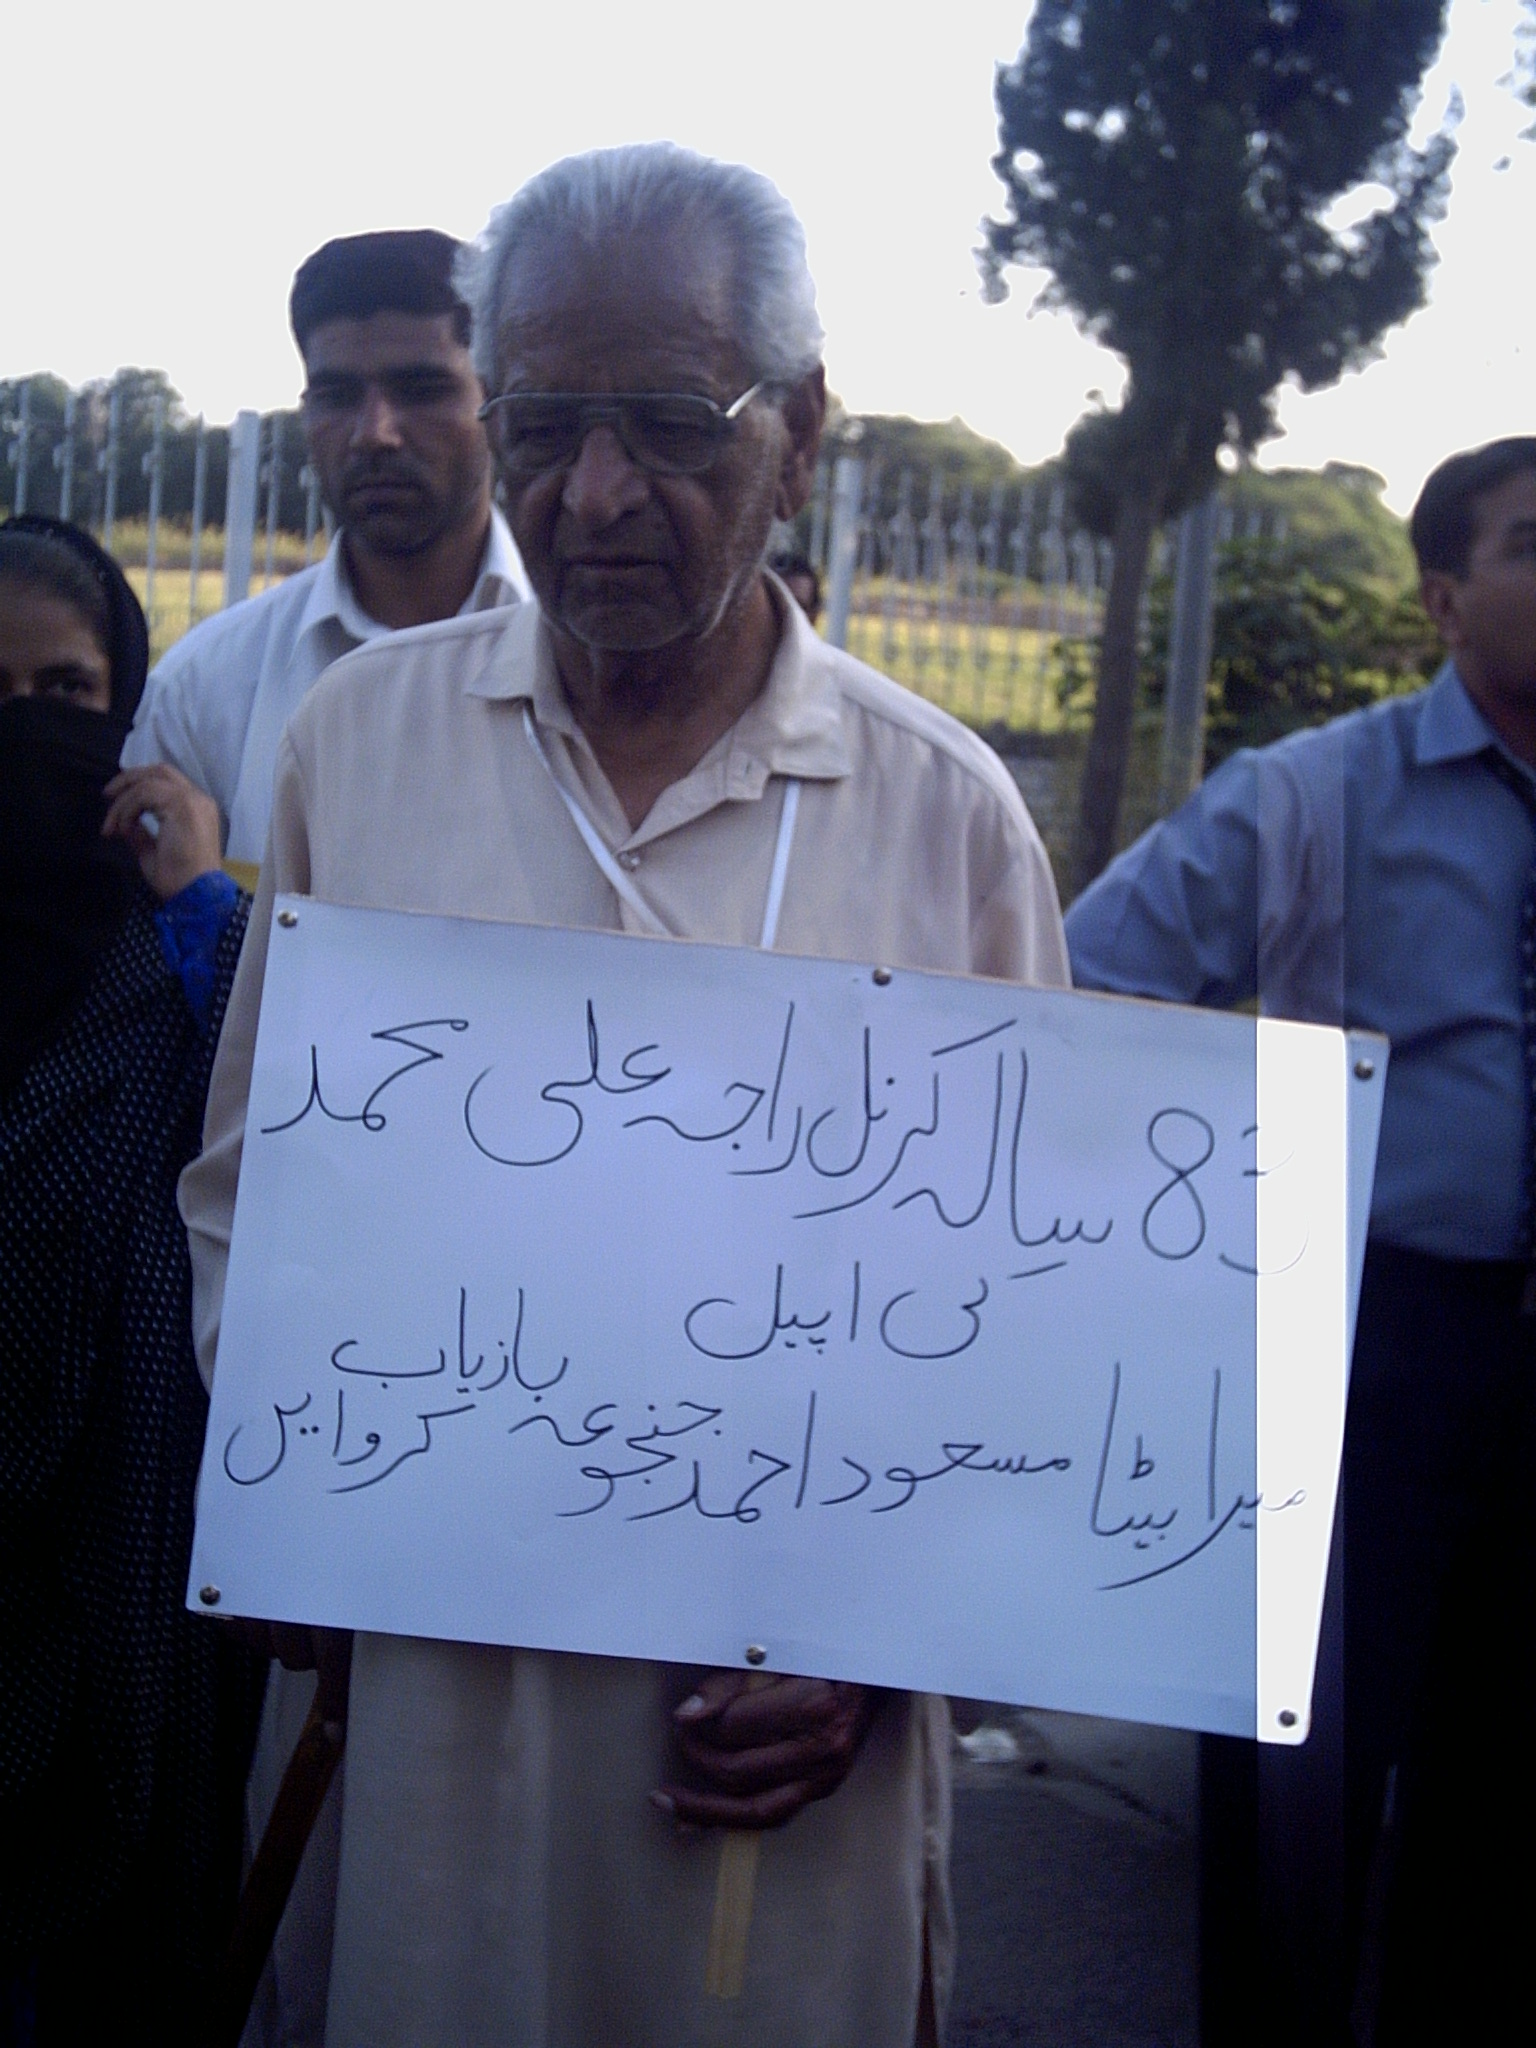 83 سالہ کرنل راجہ علی محمد
کی اپیل
میرا بیٹا مسعود احمد جنجوعہ بازیاب
کروایں